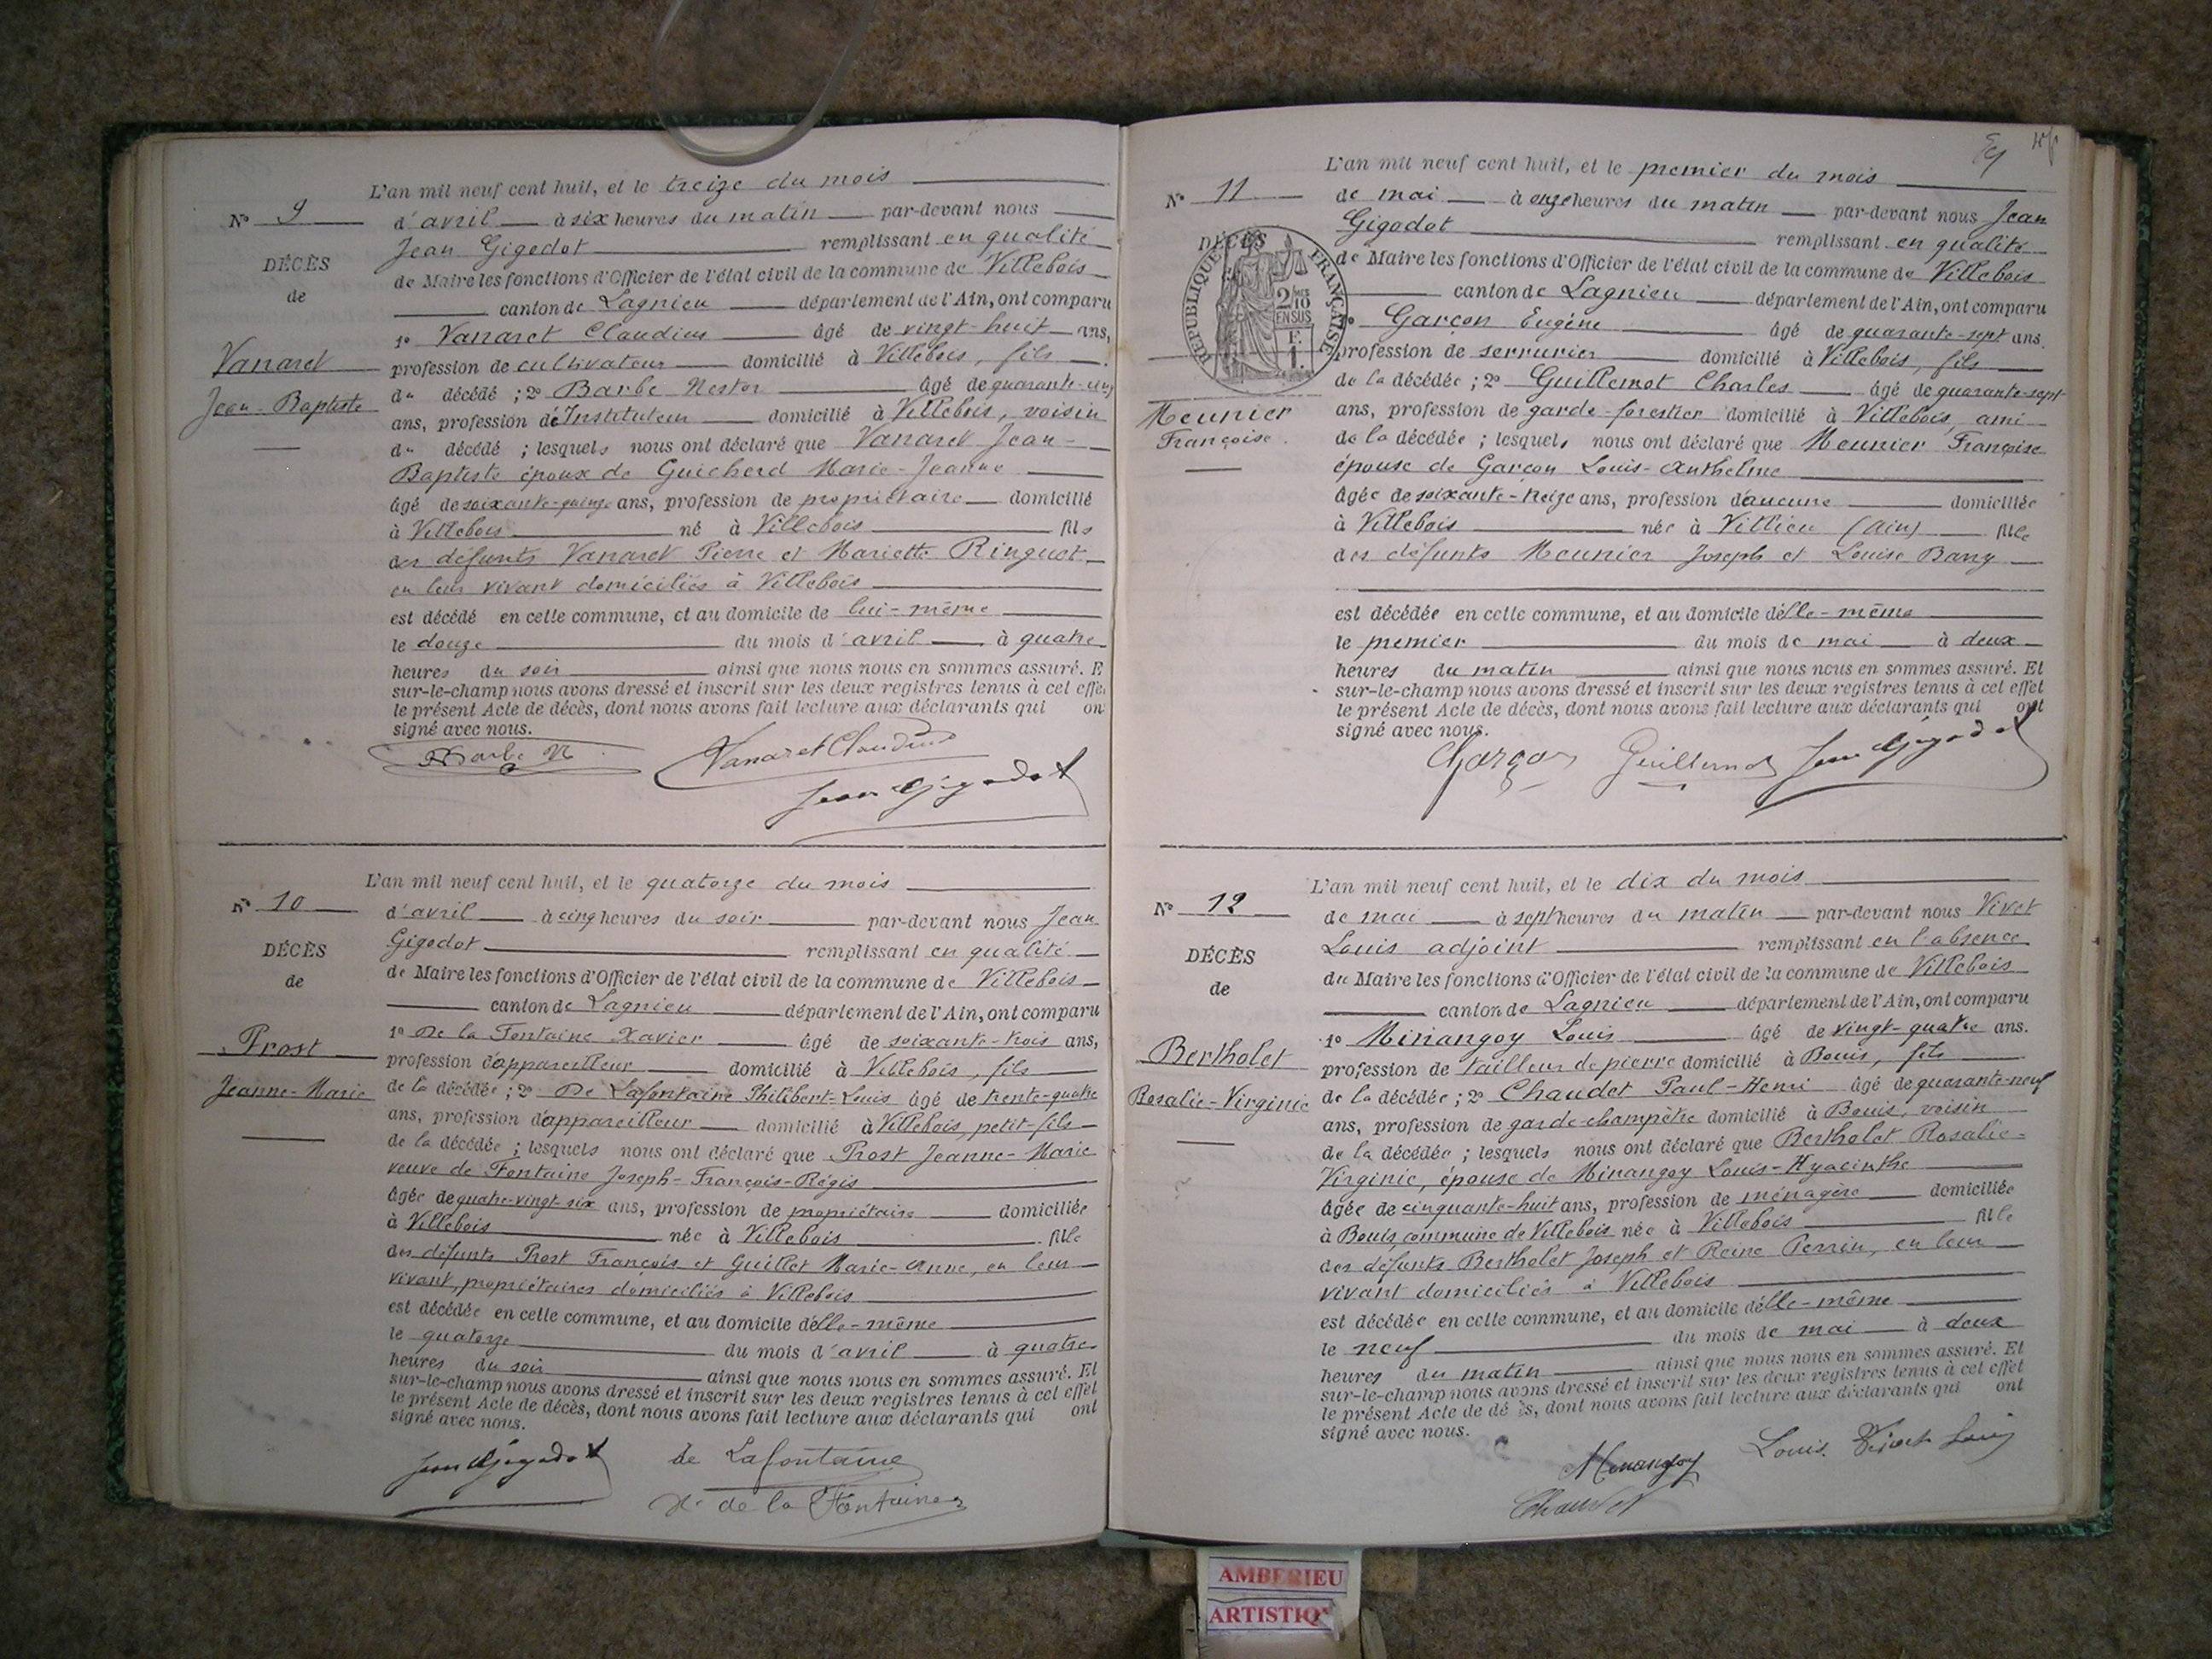 L'an mil neuf cent huit, et le treize du mois
N° 9
d'avril à six heures du matin par-devant nous
Jean Gigodot remplissant en qualité
DÉCÈS
de Maire les fonctions d'Officier de l'état civil de la commune de Villebois
de
canton de Lagnieu département de l'Ain, ont comparu
1° Vanaret Claudius âgé de vingt-huit ans,
Vanaret
profession de cultivateur domicilié à Villebois, fils
Jean-Baptiste
du décédé ; 2° Barbe Nestor âgé de quarante-cinq
ans, profession d'Instituteur domicilié à Villebois, voisin
du décédé ; lesquels nous ont déclaré que Vanaret Jean-
Baptiste époux de Guicherd Marie-Jeanne
âgé de soixante-quinze ans, profession de propriétaire domicilié
à Villebois né à Villebois fils
des défunts Vanaret Pierre et Mariette Ringuet
en leur vivant domiciliés à Villebois
est décédé en cette commune, et au domicile de lui-même
le douze du mois d'avril à quatre
heures du soir ainsi que nous nous en sommes assuré. E
sur-le-champ nous avons dressé et inscrit sur les deux registres tenus à cet effe
le présent Acte de décès, dont nous avons fait lecture aux déclarants qui on
signé avec nous.
Barbe N Vanaret Claudius
Jean Gigodot
L'an mil neuf cent huit, et le quatorze du mois
N° 10
d'avril à cinq heures du soir par-devant nous Jean
Gigodot remplissant en qualité
DÉCÈS
de Maire les fonctions d'Officier de l'état civil de la commune de Villebois
de
canton de Lagnieu département de l'Ain, ont comparu
1° De la Fontaine Xavier âgé de soixante-trois ans,
Prost
profession d'appareilleur domicilié à Villebois, fils
Jeanne-Marie
de la décédée ; 2° De Lafontaine Philibert-Louis âgé de trente-quatre
ans, profession d'appareilleur domicilié à Villebois, petit-fils
de la décédée ; lesquels nous ont déclaré que Prost Jeanne-Marie
veuve de Fontaine Joseph-François-Régis
âgée de quatre-vingt-six ans, profession de propriétaire domiciliée
à Villebois née à Villebois fille
des défunts Prost François et Guillet Marie-Anne, en leur
vivant, propriétaires domiciliés à Villebois
est décédée en cette commune, et au domicile d'elle-même
le quatorze du mois d'avril à quatre
heures du soir ainsi que nous nous en sommes assuré. Et
sur-le-champ nous avons dressé et inscrit sur les deux registres tenus à cet effet
le présent Acte de décès, dont nous avons fait lecture aux déclarants qui ont
signé avec nous.
Jean Gigodot de Lafontaine
X. de la Fontaine
L'an mil neuf cent huit, et le premier du mois
N° 11
de mai à onze heures du matin par-devant nous Jean
Gigodot remplissant en qualité
DÉCÈS
RÉPUBLIQUE FRANÇAISE
2/10 EN SUS
F. 1.
de Maire les fonctions d'Officier de l'état civil de la commune de Villebois
canton de Lagnieu département de l'Ain, ont comparu
Garçon Eugène âgé de quarante-sept ans.
profession de serrurier domicilié à Villebois, fils
de la décédée ; 2° Guillemot Charles âgé de quarante-sept
Meunier
ans, profession de garde-forestier domicilié à Villebois, ami
Françoise.
de la décédée ; lesquels nous ont déclaré que Meunier Françoise
épouse de Garçon Louis-Anthelme
âgée de soixante-treize ans, profession d'aucune domiciliée
à Villebois née à Villieu (Ain) fille
des défunts Meunier Joseph et Louise Bany
est décédée en cette commune, et au domicile d'elle-même
le premier du mois de mai à deux
heures du matin ainsi que nous nous en sommes assuré. Et
sur-le-champ nous avons dressé et inscrit sur les deux registres tenus à cet effet
le présent Acte de décès, dont nous avons fait lecture aux déclarants qui ont
signé avec nous.
Garçon Guillemot Jean Gigodot
L'an mil neuf cent huit, et le dix du mois
N° 12
de mai à sept heures du matin par-devant nous Vivet
Louis adjoint remplissant en l'absence
DÉCÈS
du Maire les fonctions d'Officier de l'état civil de la commune de Villebois
de
canton de Lagnieu département de l'Ain, ont comparu
1° Minangoy Louis âgé de vingt-quatre ans.
Bertholet
profession de tailleur de pierre domicilié à Bouis, fils
Rosalie-Virginie
de la décédée ; 2° Chaudet Paul-Henri âgé de quarante-neuf
ans, profession de garde champêtre domicilié à Bouis, voisin
de la décédée ; lesquels nous ont déclaré que Bertholet Rosalie-
Virginie, épouse de Minangoy Louis-Hyacinthe
âgée de cinquante-huit ans, profession de ménagère domiciliée
à Bouis, commune de Villebois née à Villebois fille
des défunts Bertholet Joseph et Reine Perrin, en leur
vivant domiciliés à Villebois
est décédée en cette commune, et au domicile d'elle-même
le neuf du mois de mai à deux
heures du matin ainsi que nous nous en sommes assuré. Et
sur-le-champ nous avons dressé et inscrit sur les deux registres tenus à cet effet
le présent Acte de dé ès, dont nous avons fait lecture aux déclarants qui ont
signé avec nous.
Minangoy Louis. Vivet Louis
Chaudet
AMBERIEU
ARTISTIQ